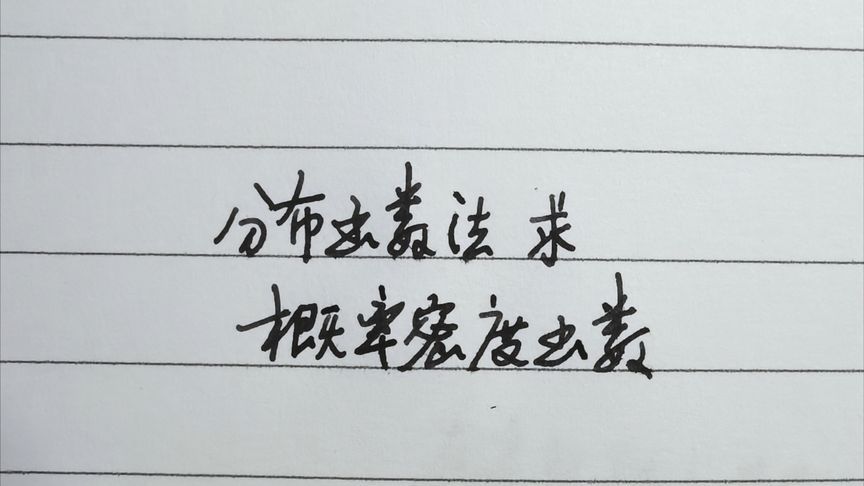 分布函数法 求
概率密度函数